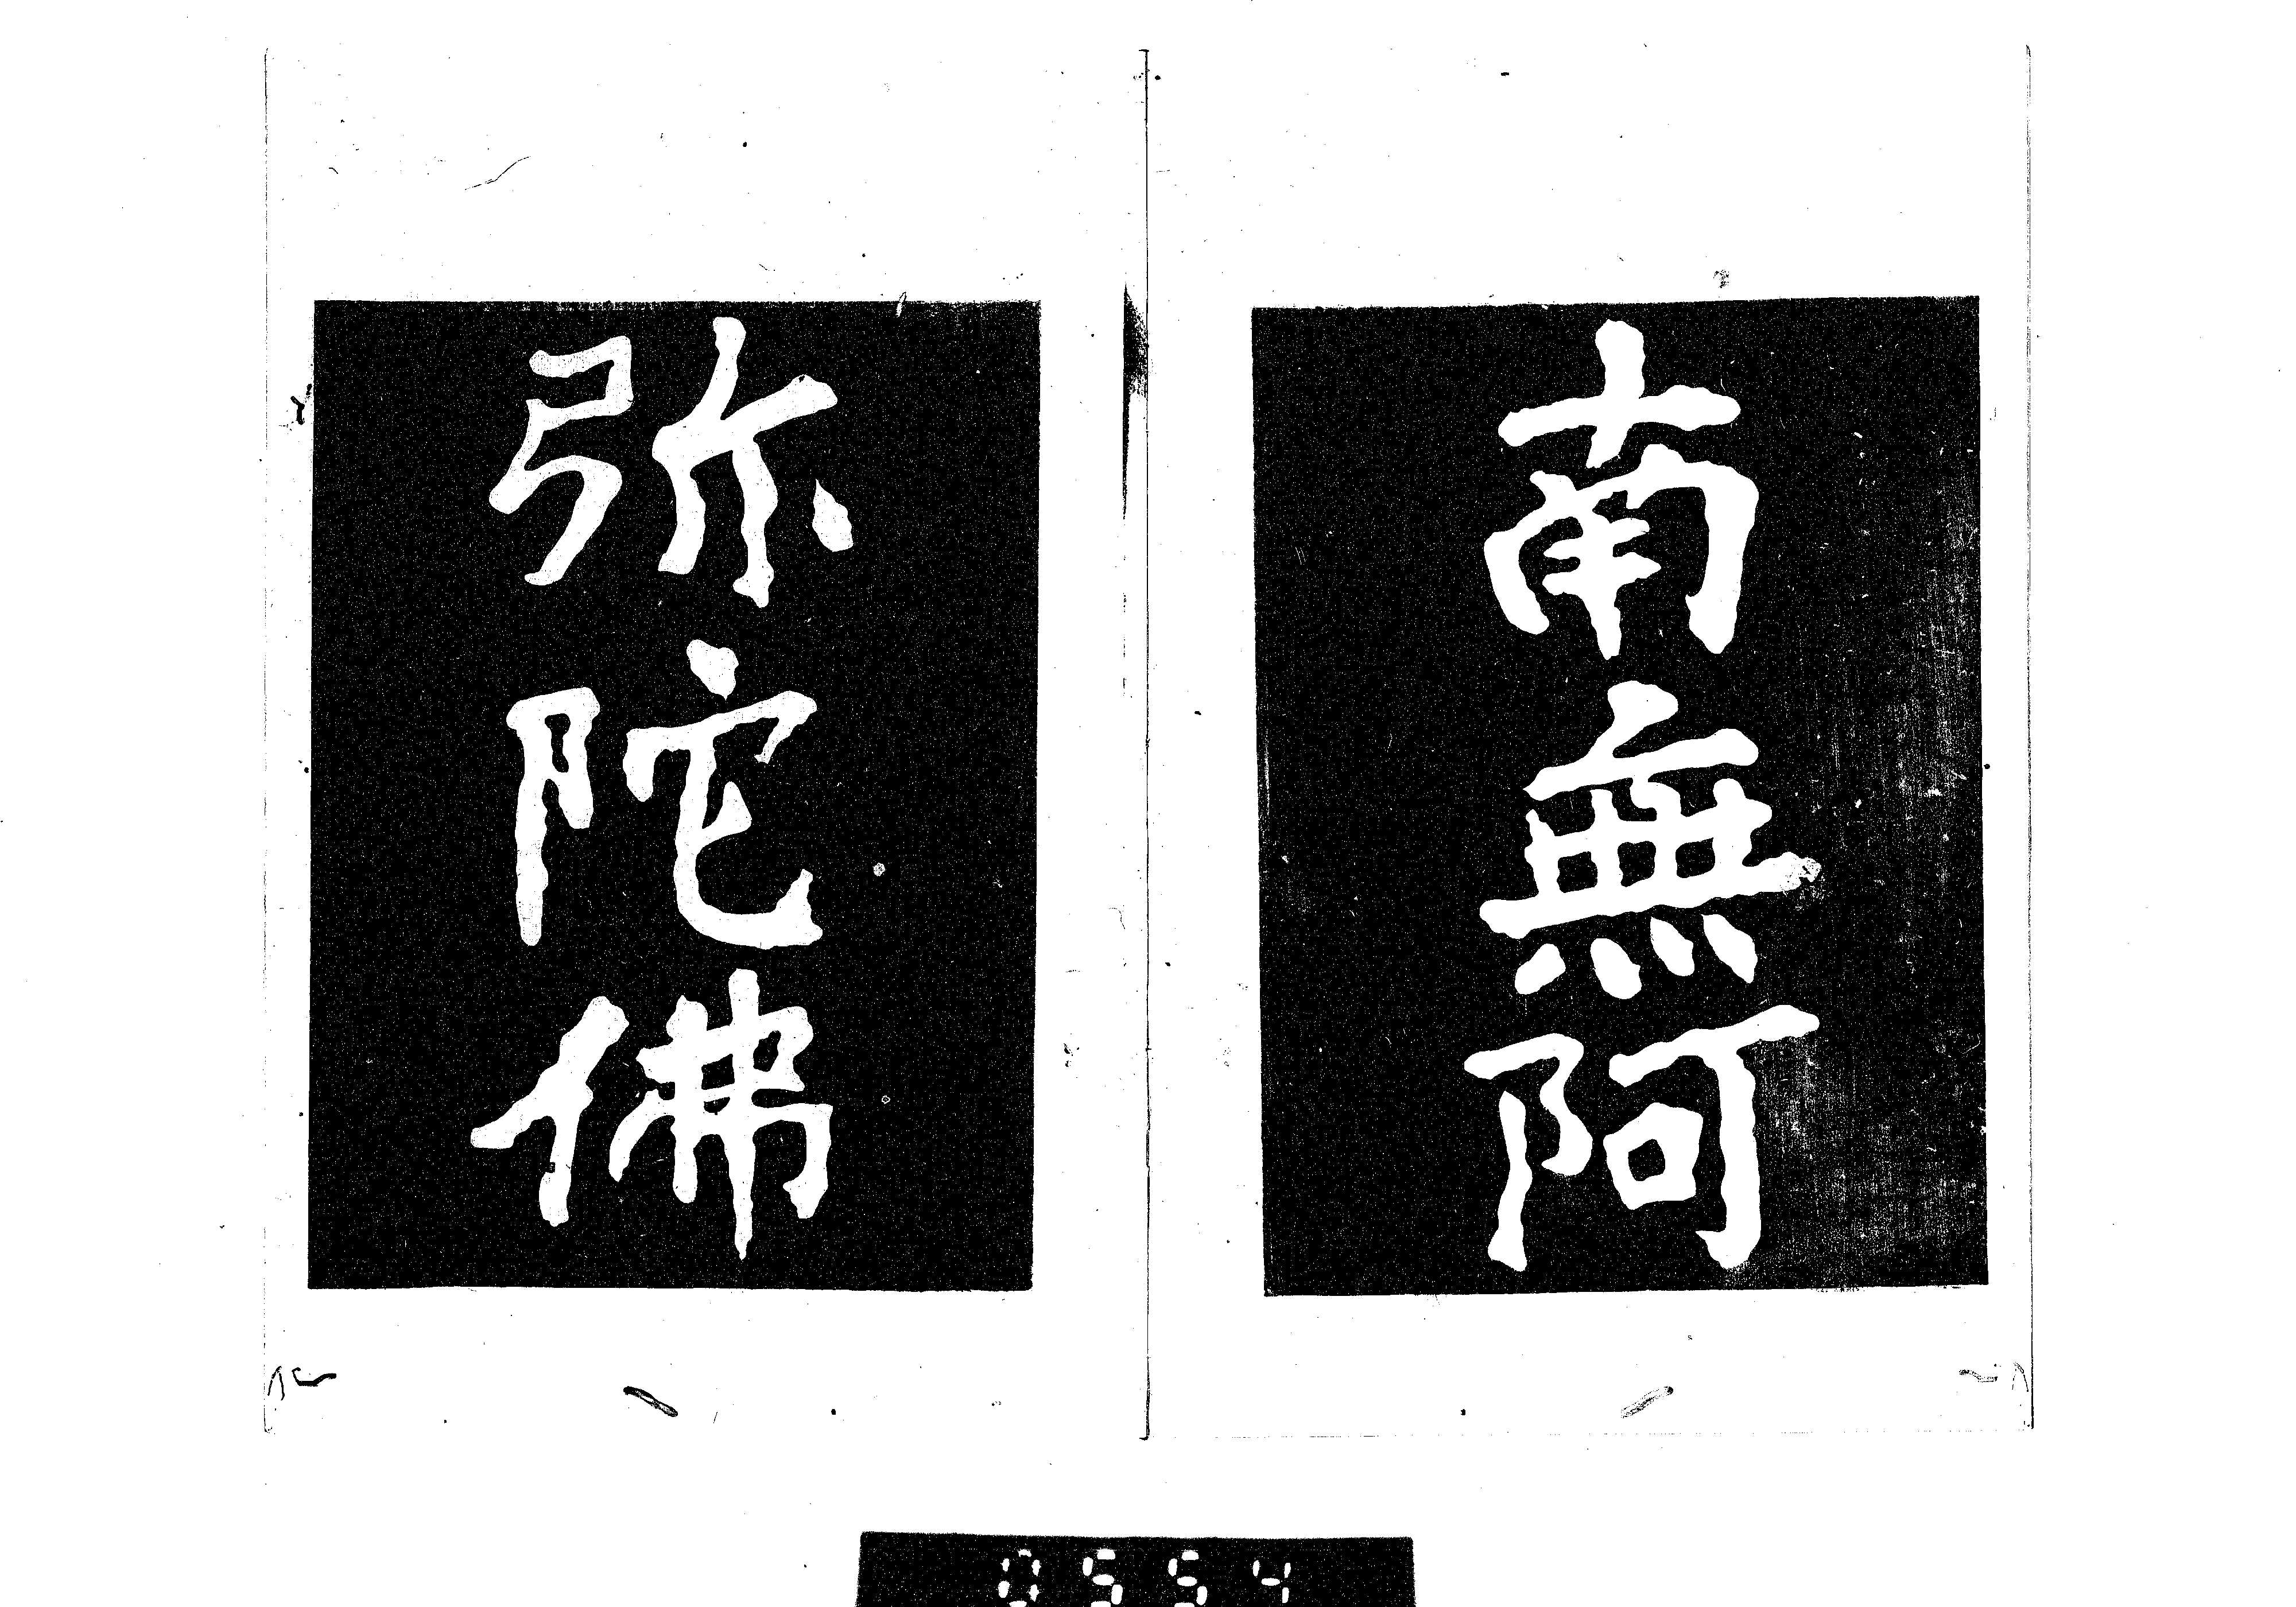 南無阿
弥陀佛
0554